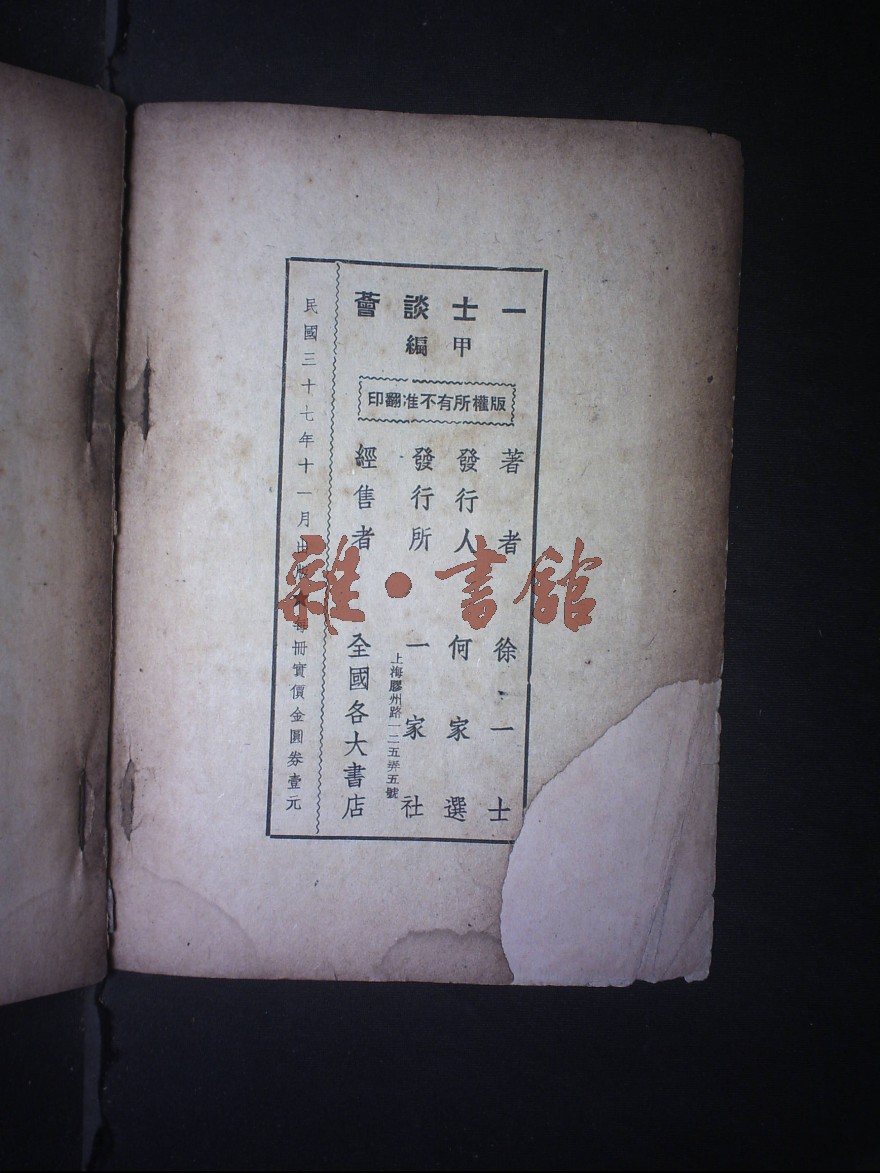 一士談薈
甲編
版權所有不准翻印
著者 徐一士
發行人 何家選
發行所 一家社
上海膠州路一二五弄五號
經售者 全國各大書店
民國三十七年十一月出版 ★ 每冊實價金圓券壹元
雜·書館